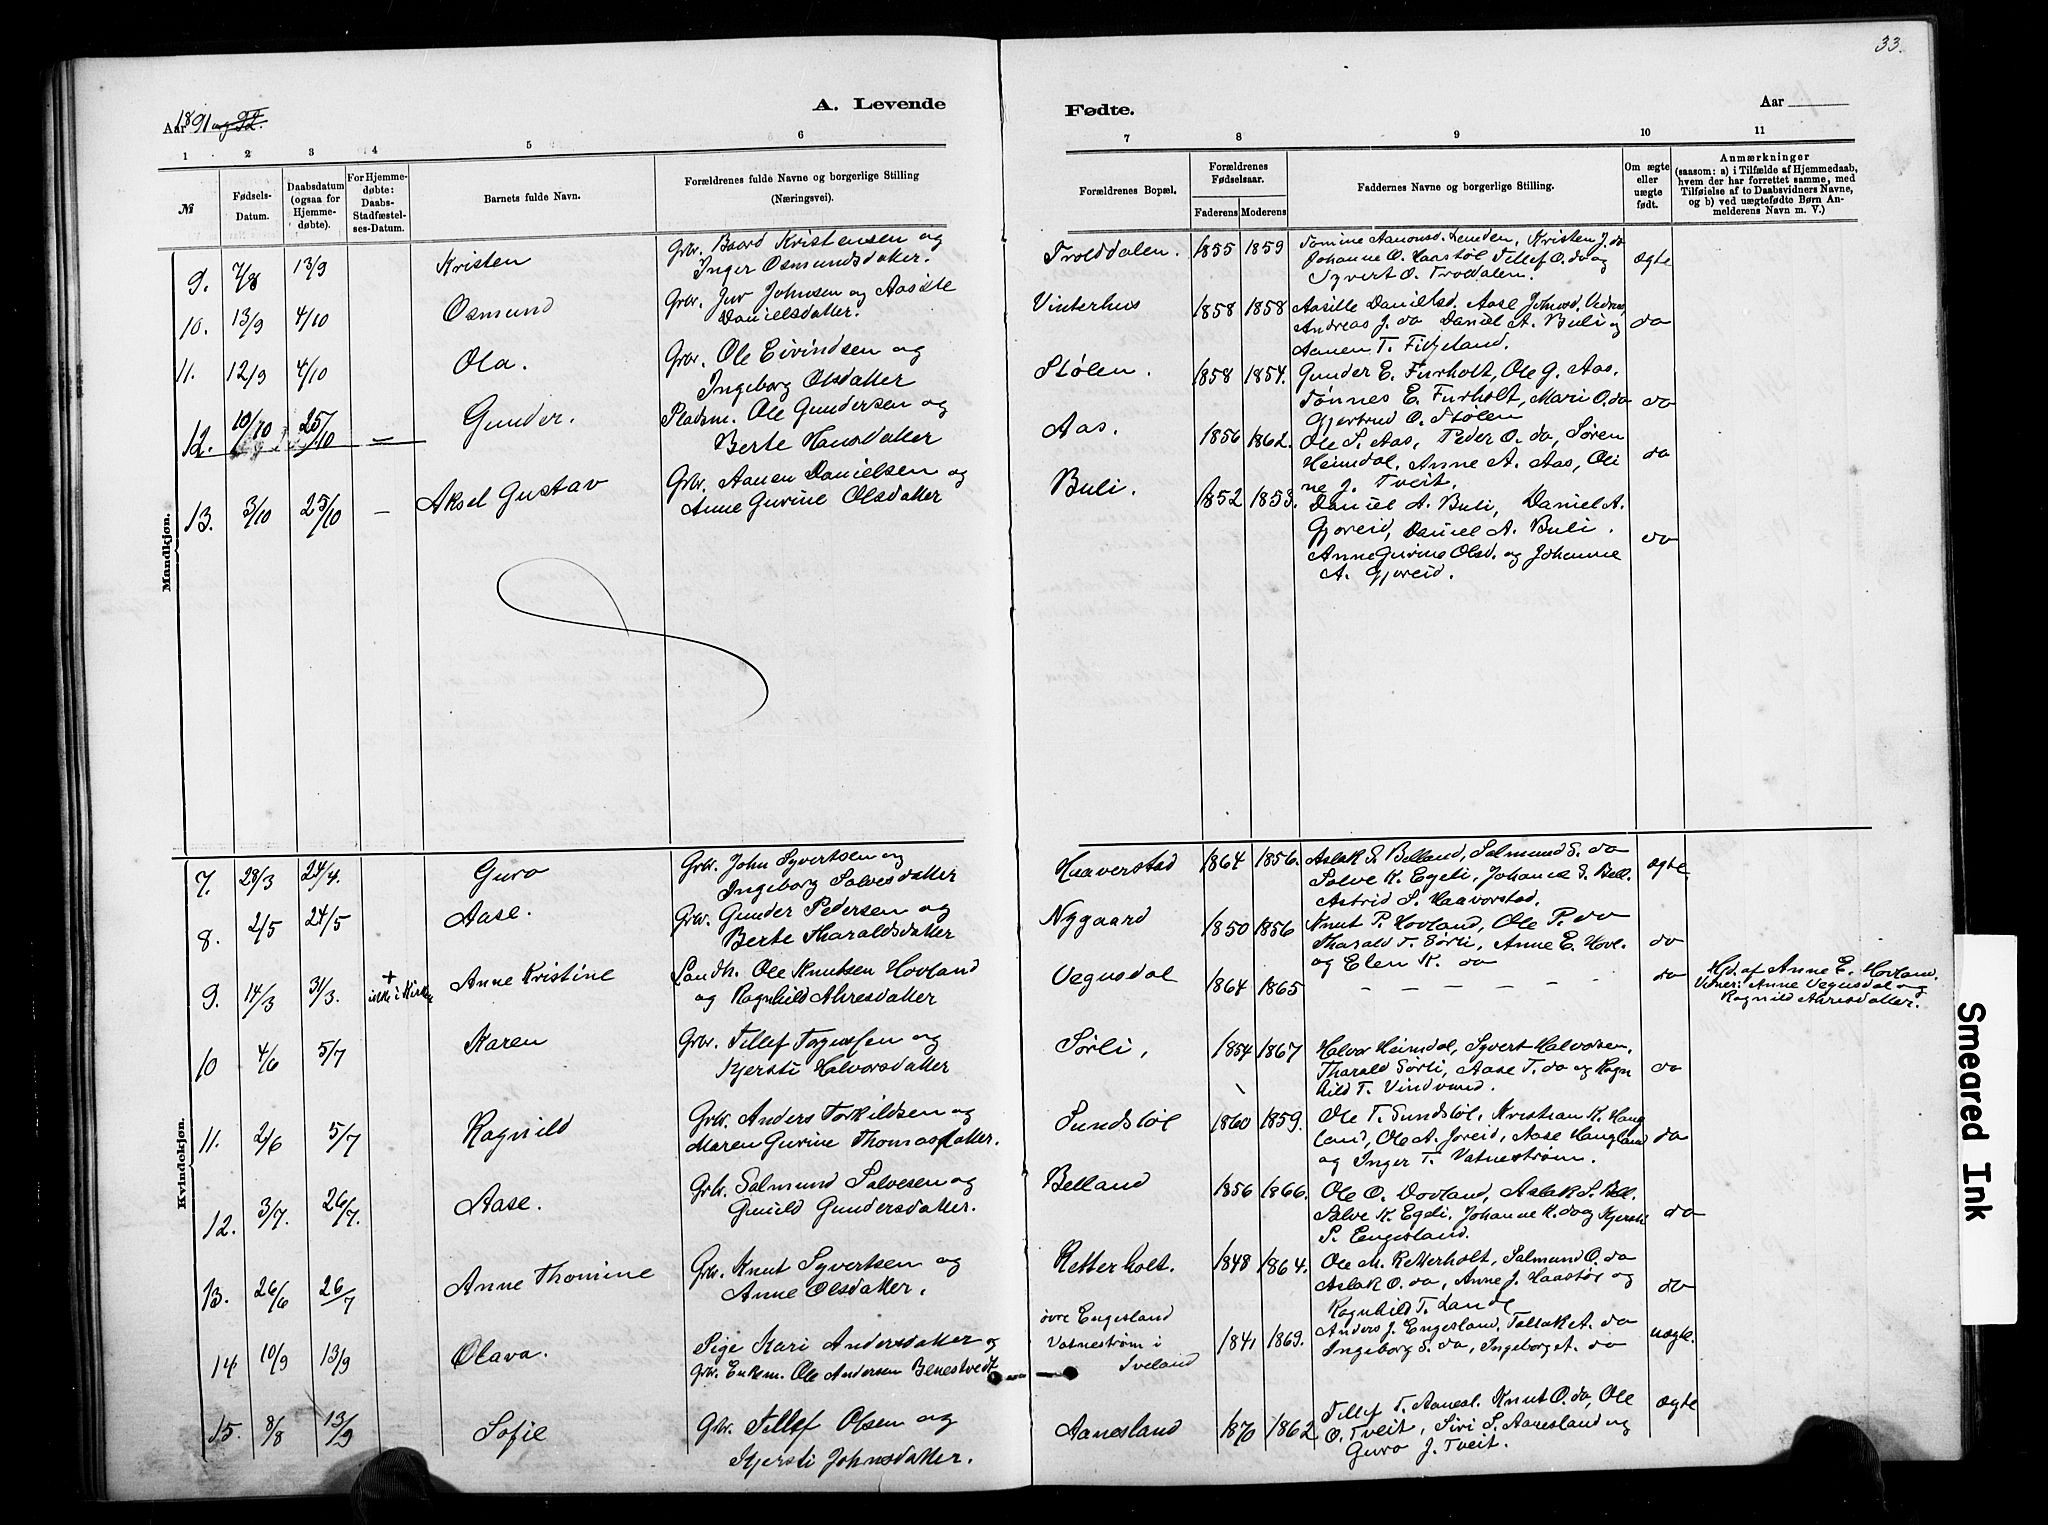 33.
Aar 1891 og 92.
A. Levende
Fødte.
Aar
1 2 3 4 5 6
7 8 9 10 11
№
Fødsels-Datum.
Daabsdatum (ogsaa for Hjemmedøbte).
For Hjemmedøbte: Daabs-Stadfæstelses-Datum.
Barnets fulde Navn.
Forældrenes fulde Navne og borgerlige Stilling (Næringsvei).
Forældrenes Bopæl.
Forældrenes Fødselsaar.
Faderens Moderens
Faddernes Navne og borgerlige Stilling.
Om ægte eller uægte født.
Anmærkninger
(saasom: a) i Tilfælde af Hjemmedaab, hvem der har forrettet samme, med Tilføielse af to Daabsvidners Navne, og b) ved uægtefødte Børn Anmelderens Navn m. V.)
Mandkjøn.
9. 7/8 13/9 Kristen Grbr. Baard Kristensen og
Inger Osmundsdatter.
Trolddalen. 1855 1859 Tomine Aanonsd. Kristen J. do
Johanne O. Haastøl Tellef O. do og
Syvert O. Trodalen. ægte
10. 13/9 4/10 Osmund Grbr. Juv Johnsen og Aasille
Danielsdatter.
Vinterhus 1858 1858 Aasille Danielsd. Aase Johnsd.
Andreas J. do Daniel A. Buli og
Aanen T. Fidjeland. do
11. 12/9 4/10 Ola. Grbr. Ole Eivindsen og
Ingeborg Olsdatter
Stølen. 1858 1854. Gunder E. Furholt, Ole G. Aas.
Tønnes E. Furholt, Mari O. do
Gjertrud O. Stølen do
12. 10/10 25/10 — Gunder. Pladsm. Ole Gundersen og
Berte Hansdatter
Aas. 1856 1862. Ole S. Aas, Peder O. do, Søren
Heimdal, Anne A. Aas, Oli
ne J. Tveit. do
13. 3/10 25/10 — Aksel Gustav Grbr. Aanen Danielsen og
Anne Gurine Olsdatter
Buli. 1852 1853. Daniel A. Buli, Daniel A.
Gjoreid, Daniel A. Buli.
Anne Gurine Olsd. og Johanne
A. Gjoreid. do
Kvindekjøn.
7. 28/3 24/4. Guro Grbr. John Syvertsen og
Ingeborg Salvesdatter
Haaverstad 1864 1856. Aslak S. Belland, Salmund S. do
Salve K. Egeli, Johanne S. Bell.
Astrid S. Haavorstad. ægte.
8. 2/5 24/5 Aase. Grbr. Gunder Pedersen og
Berte Tharaldsdatter
Nygaard 1850 1856 Knut P. Hovland, Ole P. do
Tharald T. Sørli, Anne E. Hovl.
og Elen K. do do
9. 14/3 31/3. + ikke i Kirken Anne Kristine Landh. Ole Knutsen Hovland
og Ragnhild Ahresdatter
Vegusdal 1864 1865 — — — — — — do Hjd. af Anne E. Hovland.
Vidner: Anne Vegusdal og
Ragnild Ahresdatter.
10 4/6 5/7 Karen Grbr. Tellef Torgussen og
Kjersti Halvorsdatter
Sørli, 1854 1867 Halvor Heimdal, Syvert Halvorsen,
Tharald Sørli, Aase T. do og Ragn
hild T. Vindvand. do
11. 2/6 5/7 Ragnild Grbr. Anders Torkildsen og
Maren Gurine Thomasdatter.
Sundstøl 1860 1859. Ole T. Sundstøl, Kristian K. Haug
land, Ole A. Joreid, Aase Haugland
og Inger T. Vatnestrøm. do
12. 3/7. 26/7. Aase. Grbr. Salmund Salvesen og
Gunild Gundersdatter.
Belland 1856 1866. Ole O. Dovland, Aslak S. Bell.
Salve K. Egeli, Johanne K. do og Kjersti
S. Engesland. do
13. 26/6 26/7 Anne Thomine Grbr. Knut Syvertsen og
Anne Olsdatter.
Retterholt. 1848 1864. Ole M. Retterholt, Salmund O. do
Aslak O. do, Anne J. Haastøl og
Ragnhild T. Lande do
14 10/9 13/9 Olava. Pige Kari Andersdatter og
Grbr. Enkem. Ole Andersen Benestvedt
øvre Engesland
Vatnestrøm i
Iveland
1841 1869. Anders J. Engesland, Tallak A. do
Ingeborg S. do, Ingeborg A. do uægte.
15. 8/8 13/9 Sofie Grbr. Tellef Olsen og
Kjersti Johnsdatter.
Aanesland 1870 1862 Tellef T. Aanesl. Knut O. do, Ole
O. Tveit, Siri S. Aanesland og
Guro J. Tveit. ægte
Smeared Ink